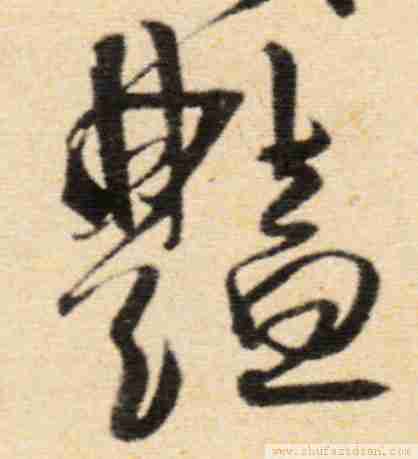 豔
www.shufazidian.com